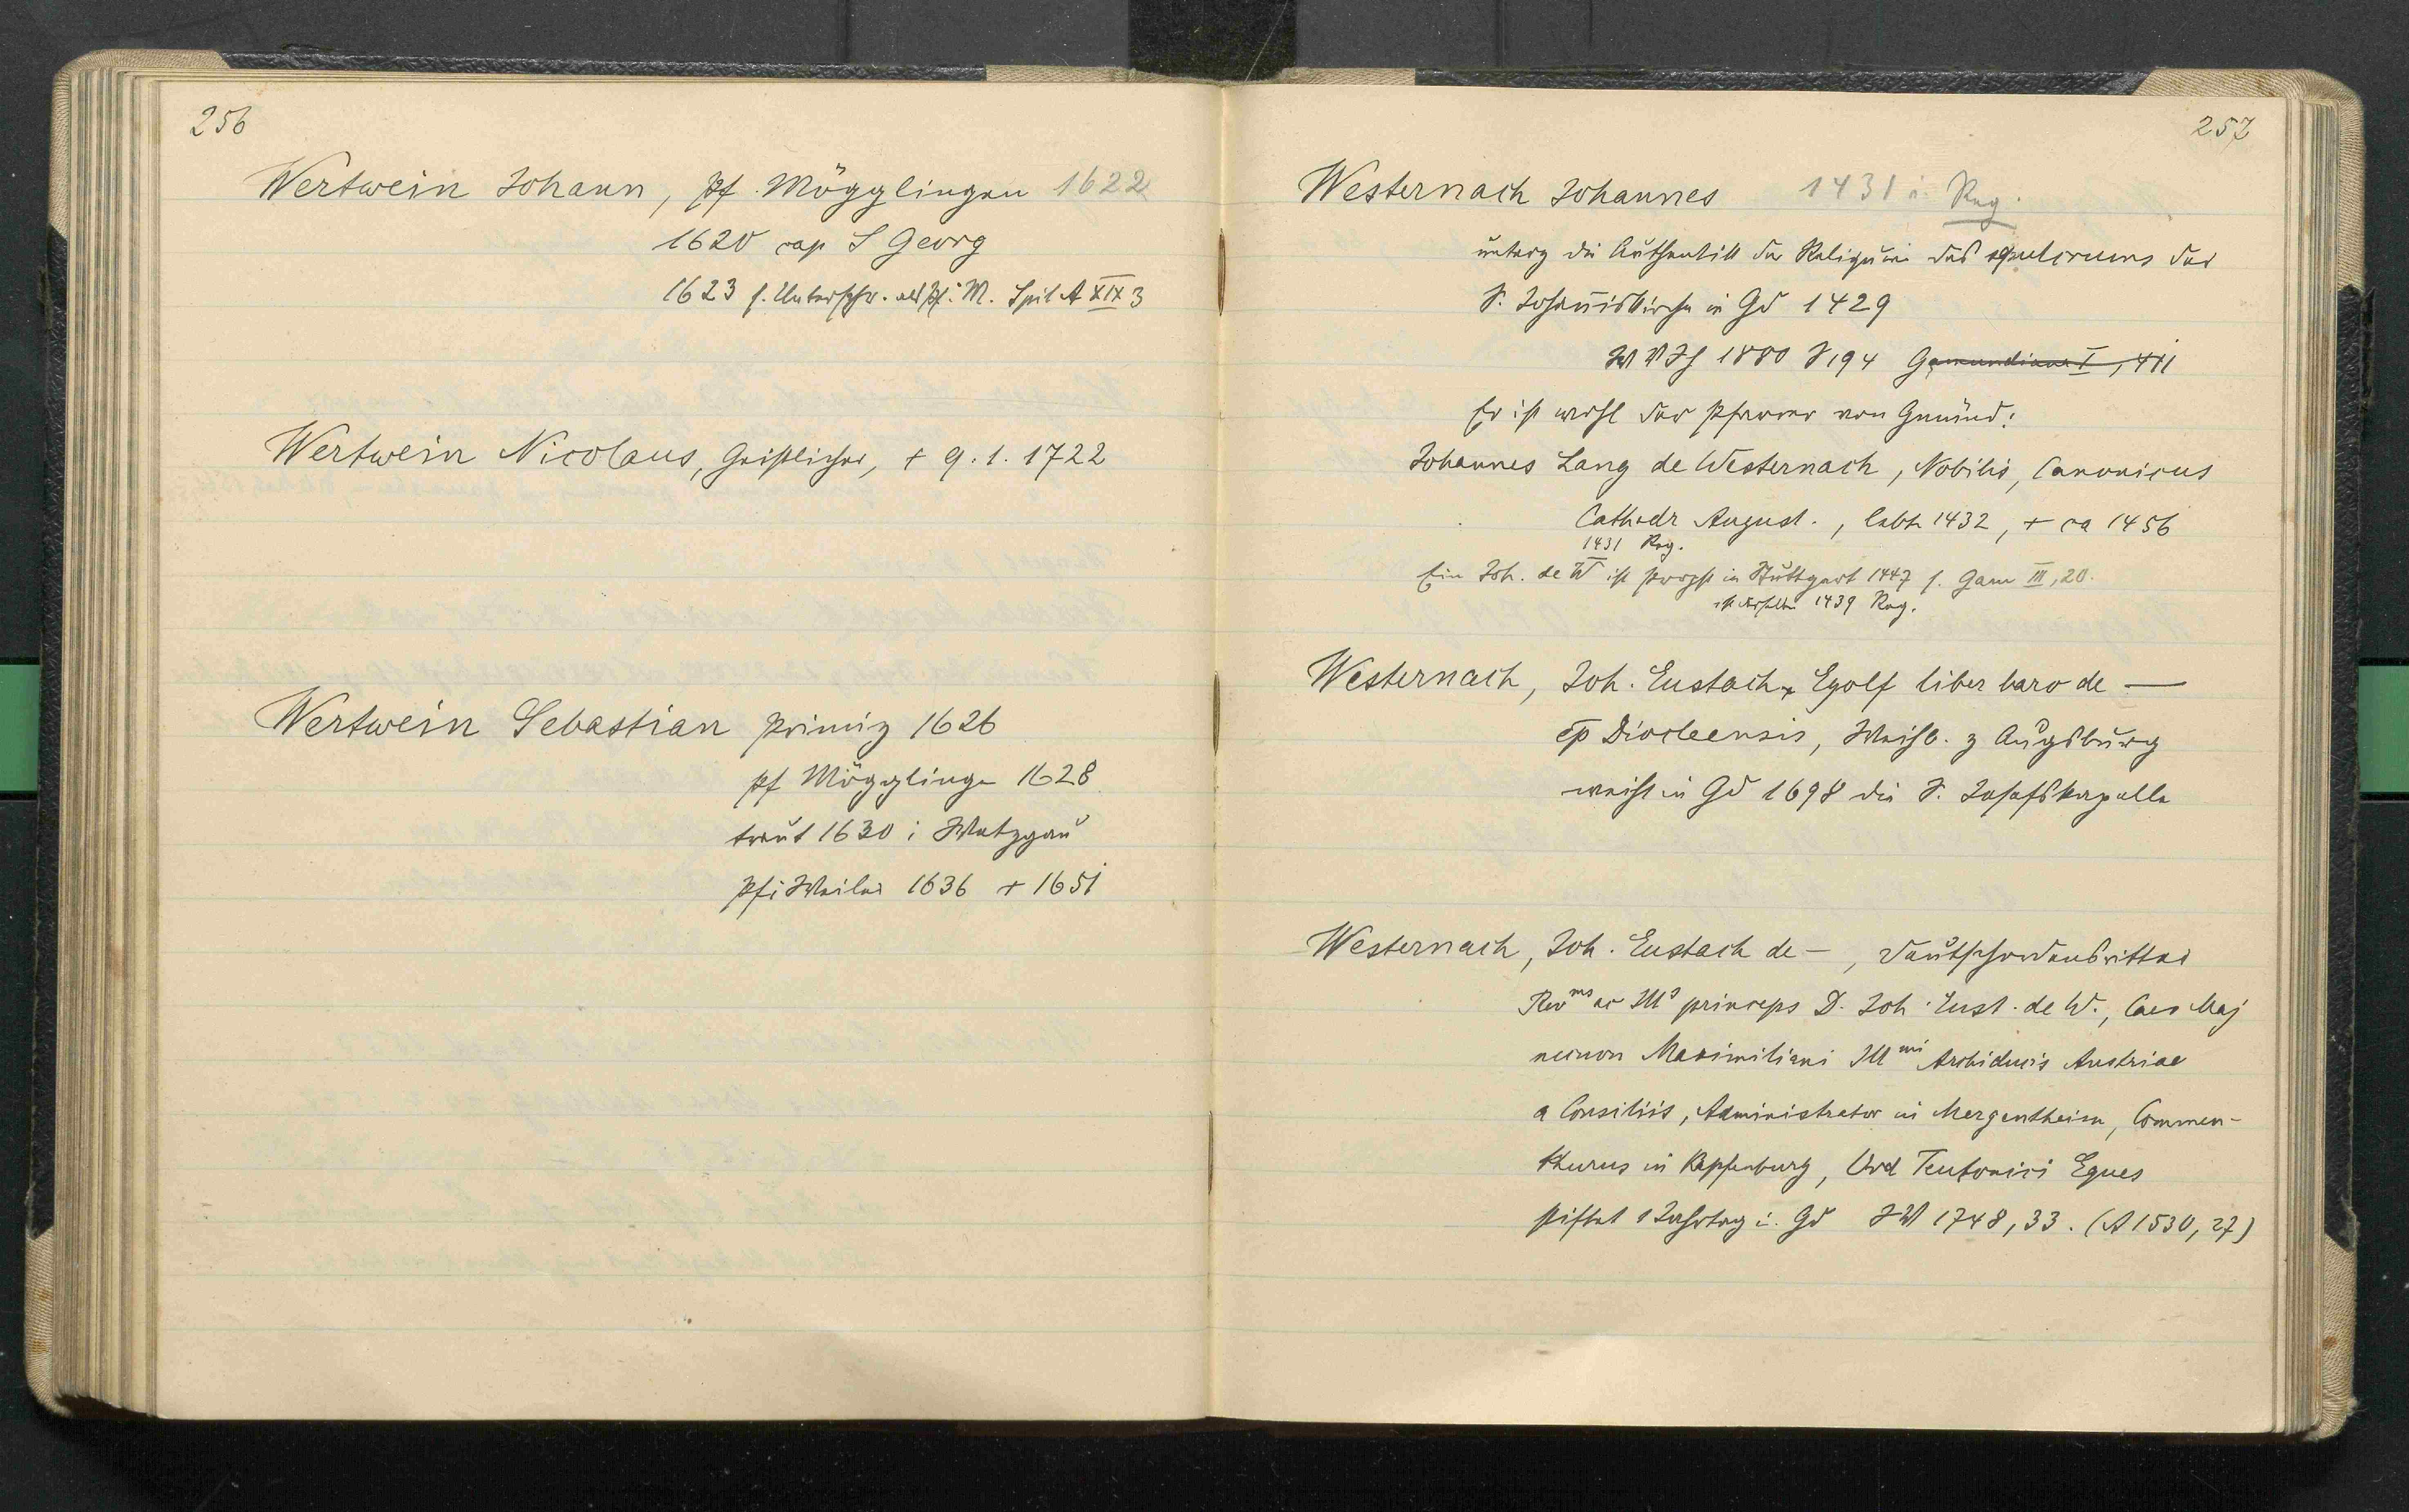 256
Wertwein Johann, Pf. Mögglingen 1622
1620 cap S Georg
1623 s. Unterschr. als Pf i M. Spit A XIX 3
Wertwein Nicolaus, Geistlicher, + 9.1.1722
Wertwein Sebastian Primiz 1626
Pf Mögglingen 1628
traut 1630 i Wetzgau
Pf i Weiler 1636 + 1651
257
Westernach Johannes 1431 i. Reg.
unterz die Authentik der Reliquien des sepulcrums der
S. Johanniskirche in Gd 1429
W V Jh 1880 S 194 Gamundiana I, 411
Er ist wohl der Pfarrer von Gmünd:
Johannes Lang de Westernach, Nobilis, Canonicus
Cathedr August., lebte 1432, + ca 1456
1431 Reg.
Ein Joh. de W ist Propst in Stuttgart 1447 s. Gam III, 20.
ist derselbe 1439 Reg.
Westernach, Joh. Eustach Egolf liber baro de —
ep Diocleensis, Weihb. z Augsburg
weiht in Gd 1698 die S. Josefskapelle
Westernach, Joh. Eustach de —, Deutschordensritter
Rev ms ac Ill s princeps D. Joh. Eust. de W., Caes Maj
necnon Maximiliani Ill mi Archiducis Austriae
a Consiliis, Administrator in Mergentheim, Commen-
thurus in Kapfenburg, Ord Teutonici Eques
stiftet 1 Jahrtag i. Gd JW 1748, 33. (A 1530, 27)